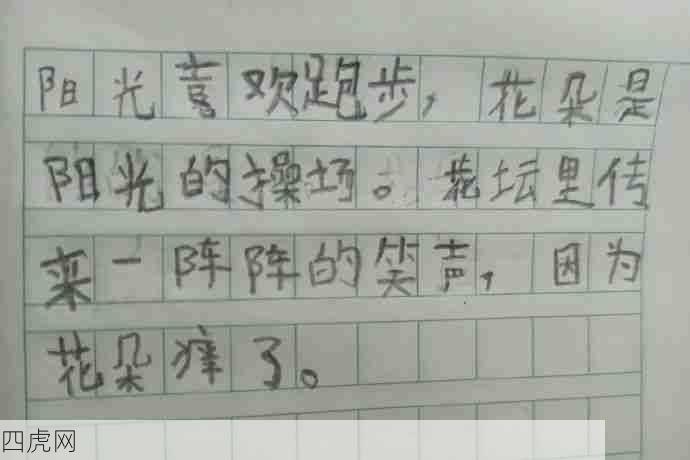 阳光喜欢跑步，花朵是
阳光的操场。花坛里传
来一阵阵的笑声，因为
花朵痒了。
四虎网